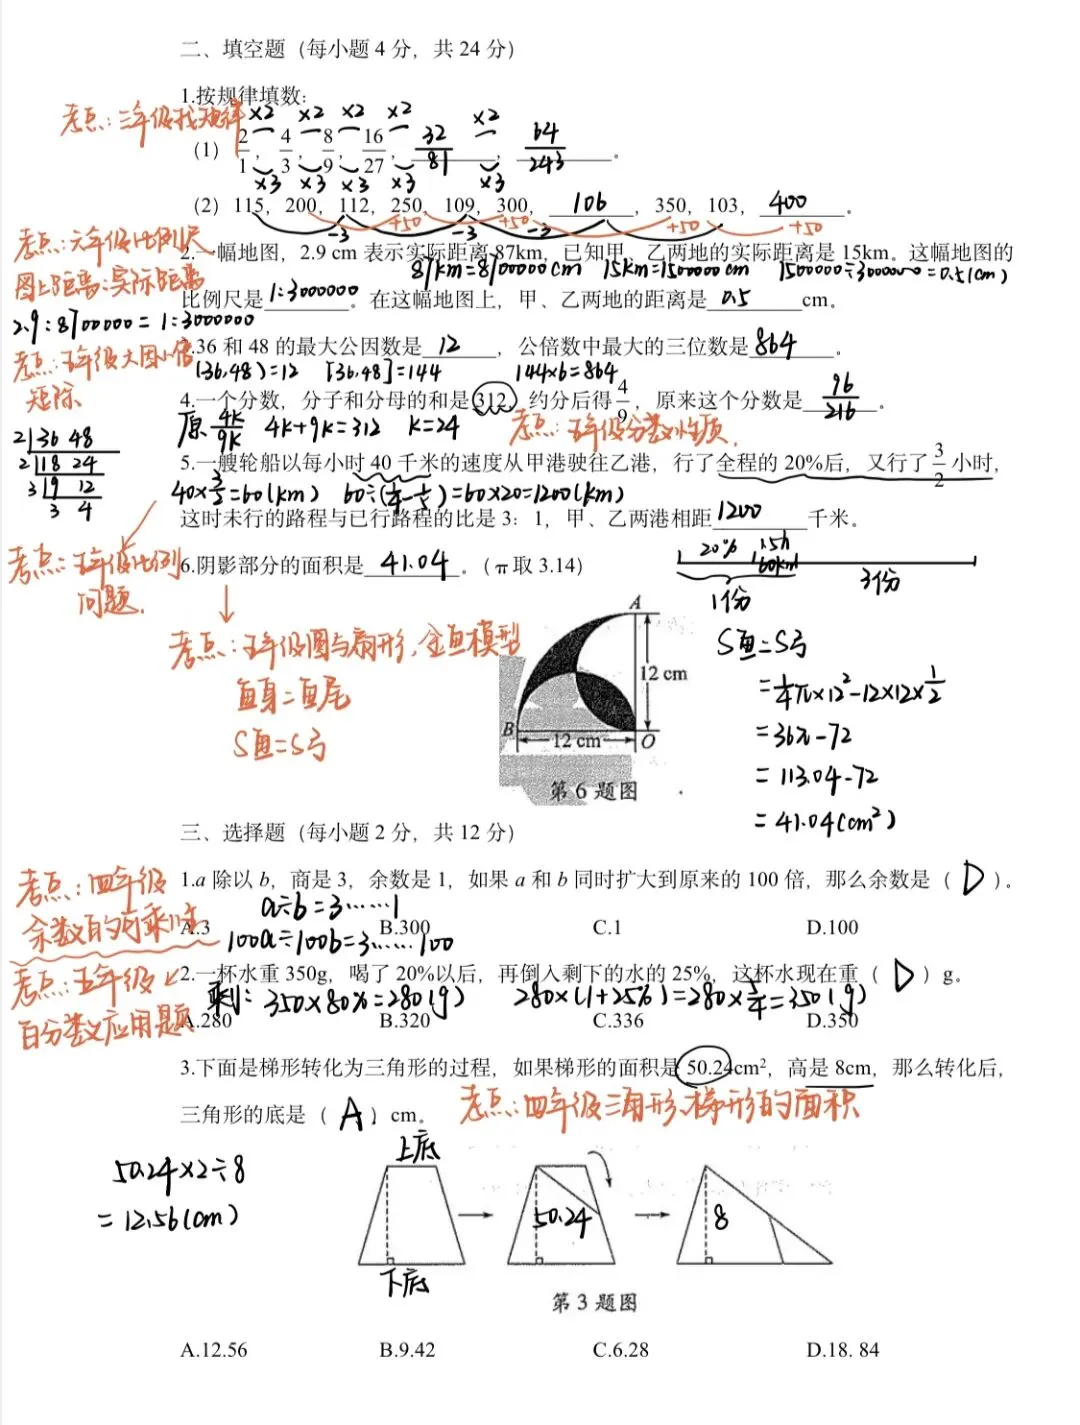 二、填空题（每小题 4 分，共 24 分）
1.按规律填数:
考点:三年级找规律
×2 ×2 ×2 ×2 ×2
（1） 2/1，4/3，8/9，16/27，32/81，64/243。
×3 ×3 ×3 ×3 ×3
（2） 115，200，112，250，109，300，106，350，103，400。
+50 +50 +50 +50
-3 -3 -3
考点:六年级比例尺
图上距离:实际距离
2.9:8700000=1:3000000
2.一幅地图，2.9 cm 表示实际距离 87km，已知甲、乙两地的实际距离是 15km。这幅地图的
87km=8700000cm 15km=1500000cm 1500000÷3000000=0.5(cm)
比例尺是 1:3000000。在这幅地图上，甲、乙两地的距离是 0.5 cm。
3.36 和 48 的最大公因数是 12，公倍数中最大的三位数是 864。
(36,48)=12 [36,48]=144 144×6=864
考点:五年级大因小倍
短除
2 36 48
2 18 24
3 9 12
3 4
4.一个分数，分子和分母的和是 312，约分后得 4/9，原来这个分数是 96/216。
原 4k/9k 4k+9k=312 k=24
考点:五年级分数性质.
5.一艘轮船以每小时 40 千米的速度从甲港驶往乙港，行了全程的 20%后，又行了 3/2 小时，
40×3/2=60(km) 60÷(1/4-1/5)=60×20=1200(km)
这时未行的路程与已行路程的比是 3：1，甲、乙两港相距 1200 千米。
考点:五年级比例
问题.
20% 1.5h
60km
1份 3份
6.阴影部分的面积是 41.04。(π取 3.14)
考点:五年级圆与扇形,金鱼模型
鱼身=鱼尾
S鱼=S弓
A
12 cm
B
12 cm
O
第 6 题图
S鱼=S弓
=1/4π×12²-12×12×1/2
=36π-72
=113.04-72
=41.04(cm²)
三、选择题（每小题 2 分，共 12 分）
考点:四年级
余数的可乘性
1.a 除以 b，商是 3，余数是 1，如果 a 和 b 同时扩大到原来的 100 倍，那么余数是（ D ）。
a÷b=3……1
A.3 B.300 C.1 D.100
100a÷100b=3……100
考点:五年级
百分数应用题
2.一杯水重 350g，喝了 20%以后，再倒入剩下的水的 25%，这杯水现在重（ D ）g。
剩: 350×80%=280(g) 280×(1+25%)=280×5/4=350(g)
A.280 B.320 C.336 D.350
3.下面是梯形转化为三角形的过程，如果梯形的面积是 50.24cm²，高是 8cm，那么转化后，
三角形的底是（ A ）cm。
考点:四年级三角形、梯形的面积
50.24×2÷8
=12.56(cm)
上底
下底
50.24
8
第 3 题图
A.12.56 B.9.42 C.6.28 D.18. 84